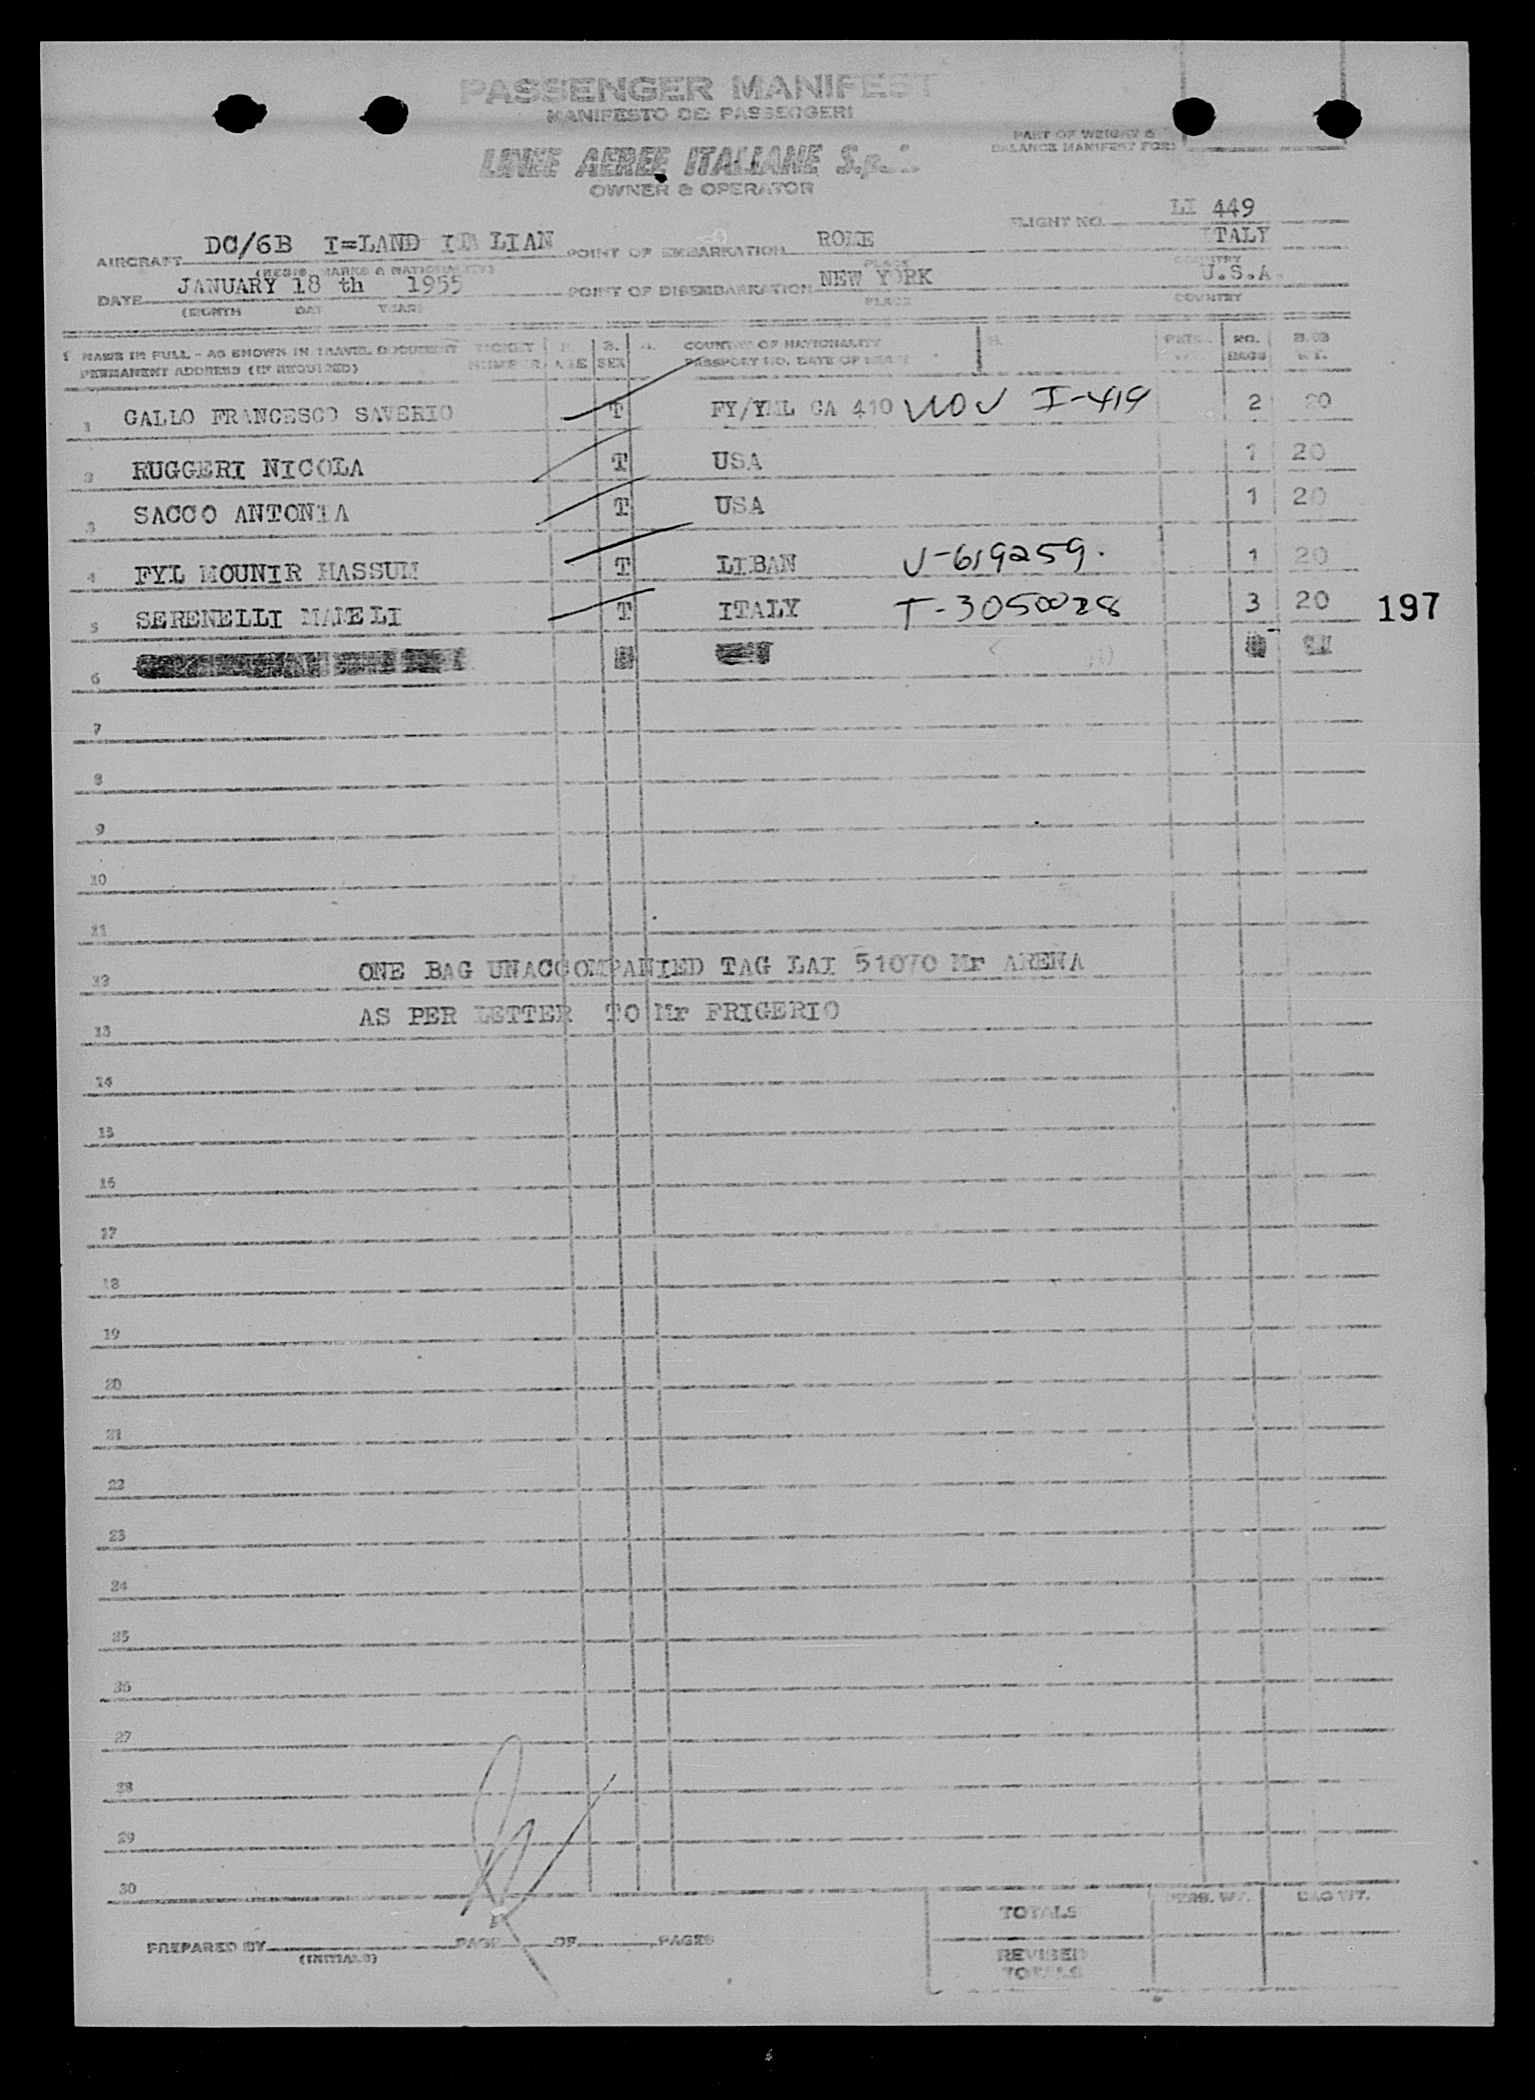 PASSENGER MANIFEST
MANIFESTO DEI PASSEGGERI
PART OF WEIGHT &
BALANCE MANIFEST FOR:
LINEE AEREE ITALIANE S.p.A.
OWNER & OPERATOR
FLIGHT NO. LI 449
AIRCRAFT DC/6B I=LAND ITA LIAN POINT OF EMBARKATION ROME ITALY
(REGIS. MARKS & NATIONALITY) PLACE COUNTRY
DATE JANUARY 18 th 1955 POINT OF DISEMBARKATION NEW YORK U.S.A.
(MONTH DAY YEAR) PLACE COUNTRY
1 NAME IN FULL - AS SHOWN IN TRAVEL DOCUMENT TICKET 2. 3. 4. COUNTRY OF NATIONALITY NO. BAG
PERMANENT ADDRESS (IF REQUIRED) NUMBER AGE SEX PASSPORT NO. DATE OF BAGS WT.
1 GALLO FRANCESCO SAVERIO T FY/YML CA 410 NOV I-419 2 20
2 RUGGERI NICOLA T USA 1 20
3 SACCO ANTONIA T USA 1 20
4 FYL MOUNIR MASSUM T LIBAN V-619259. 1 20
5 SERENELLI MAMELI T ITALY T-3050028 3 20 197
6
7
8
9
10
11
12 ONE BAG UNACCOMPANIED TAG LAI 51070 Mr ARENA
13 AS PER LETTER TO Mr FRIGERIO
14
15
16
17
18
19
20
21
22
23
24
25
26
27
28
29
30
TOTALS PERS. WT. BAG WT.
PREPARED BY PAGE OF PAGES
(INITIALS)
REVISED
TOTALS